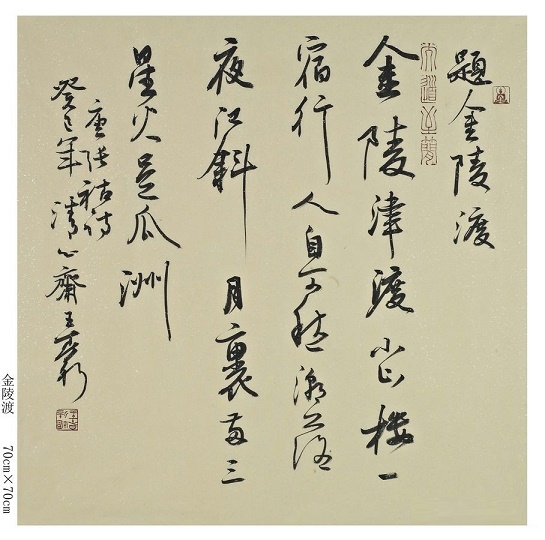 題金陵渡
金陵津渡小山樓一
宿行人自可愁潮落
夜江斜月裏兩三
星火是瓜洲
唐張祜詩
癸巳年清心齋王
大道至簡
金陵渡 70cm×70cm